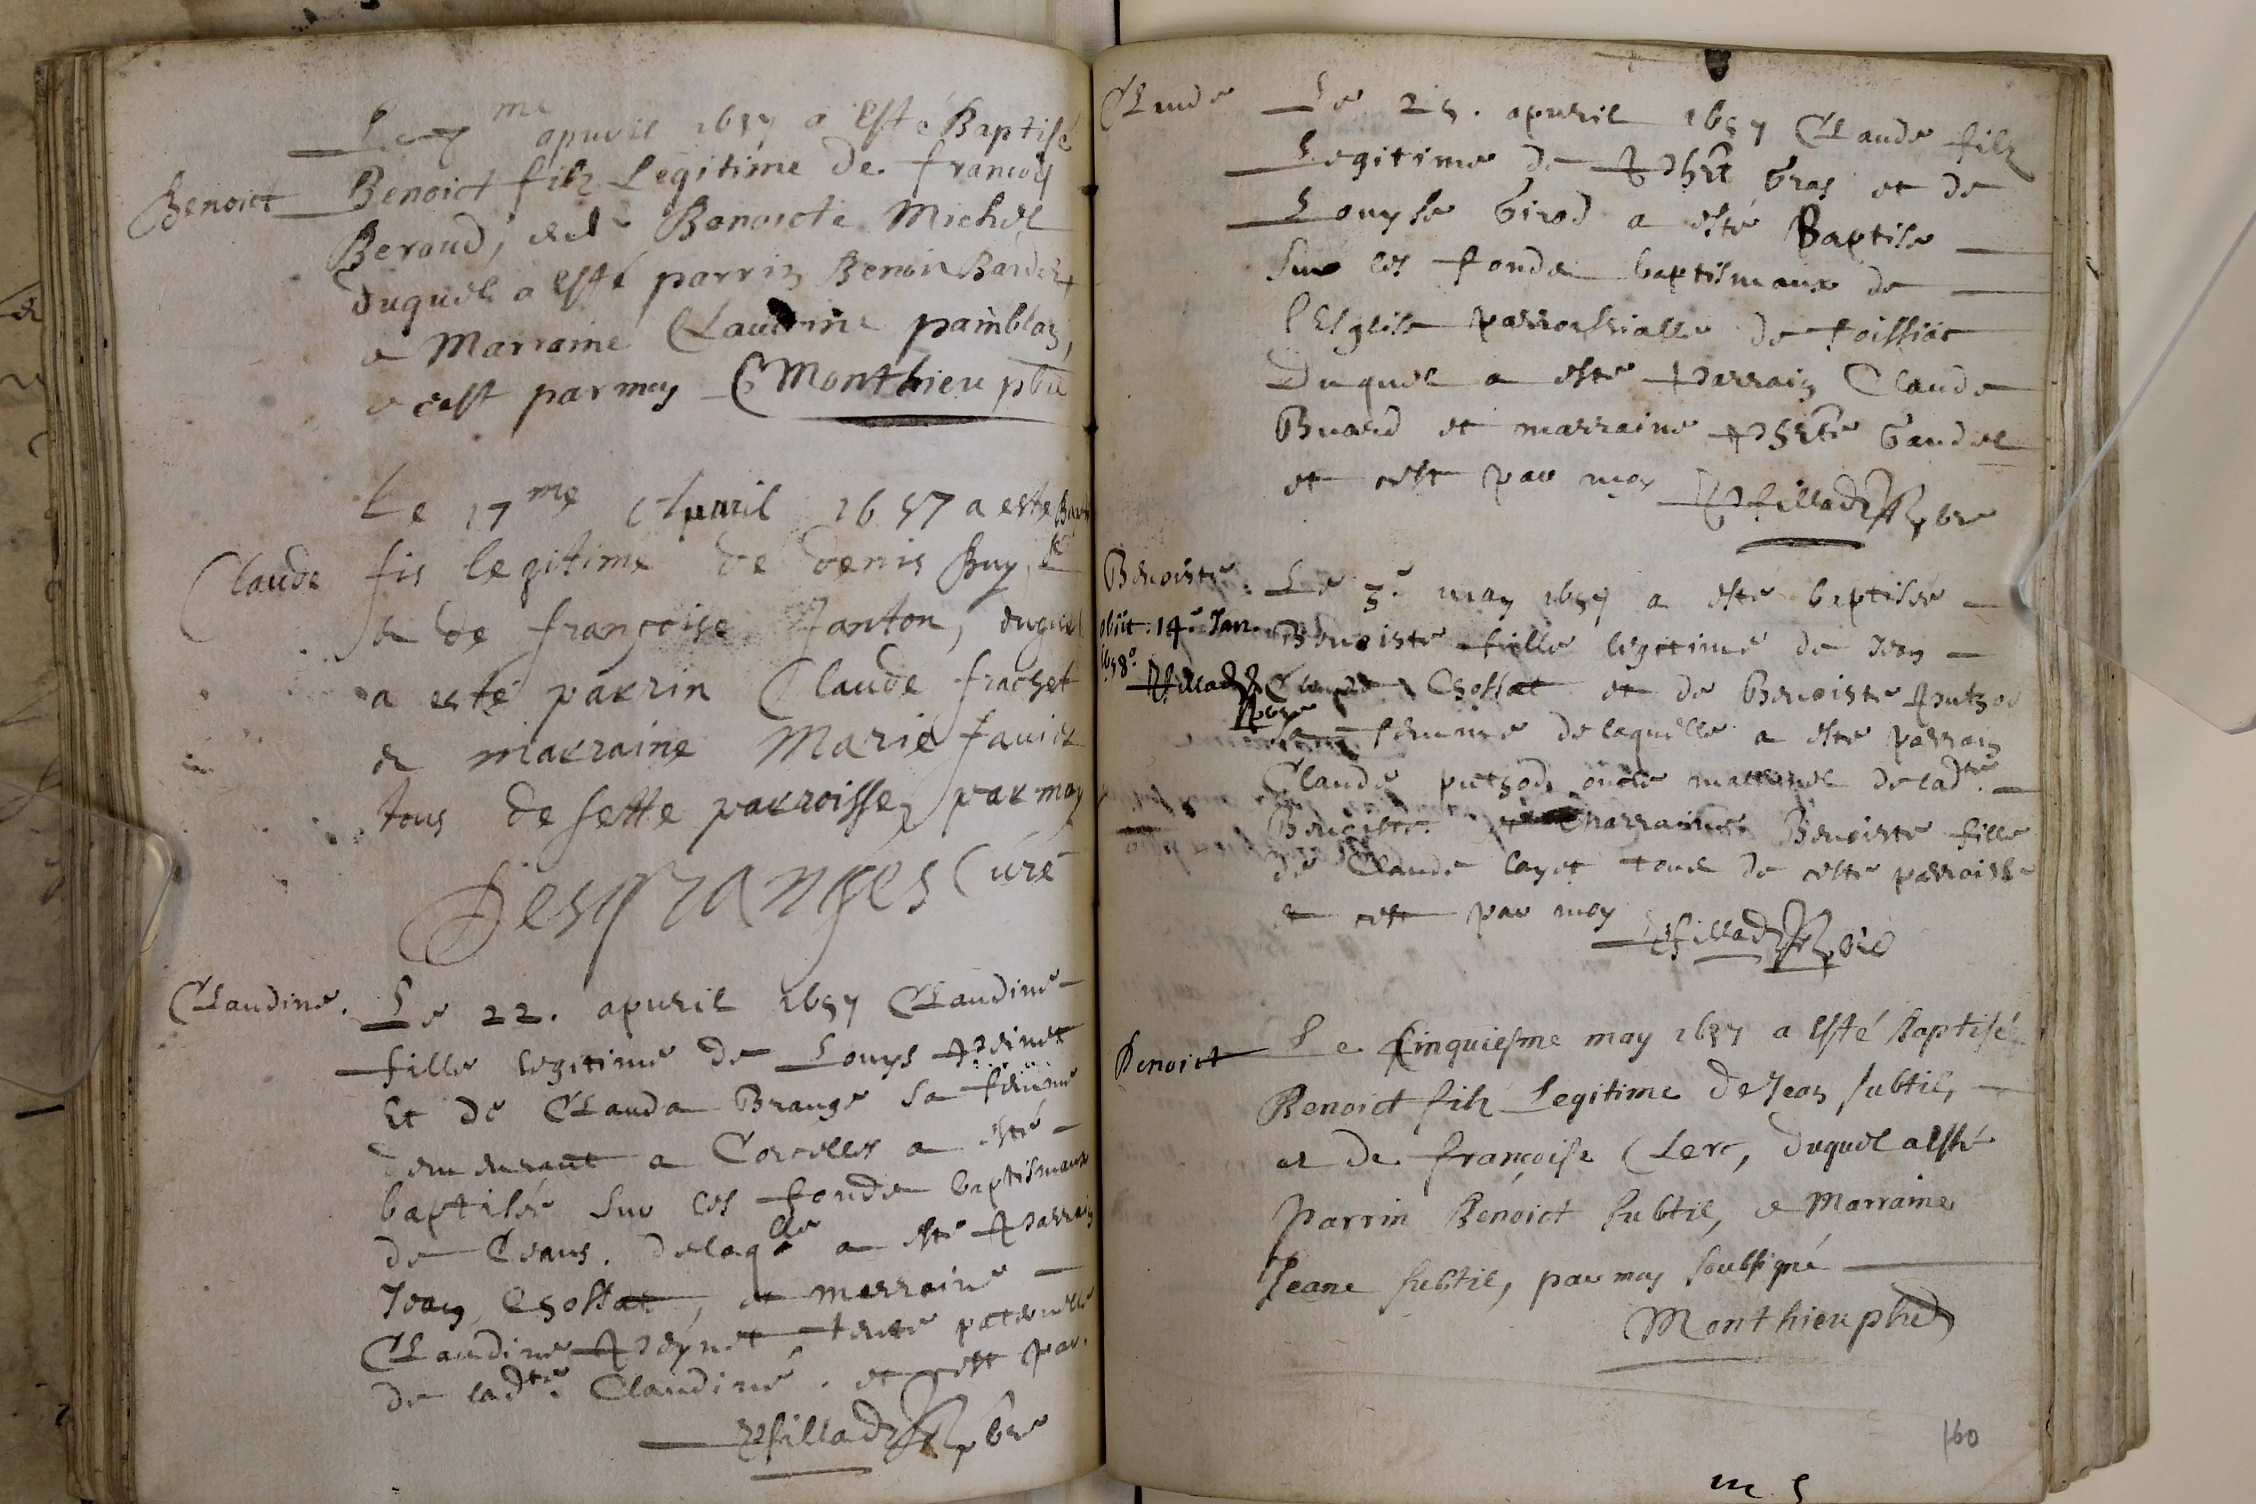 Le 7me apuril 1657 a esté Baptisé
Benoict
Benoict filz Legitime de francoys
Beroud, et de Benoicte Michel
duquel a esté parrin Benoit Bardet
e Marraine Claudine pamblan,
e cest par moy Monthieu pbre
Le 17me Apuril 1657 a esté Bapt
Claude
fis legitime de denis Buy
& de françoise Janton, duquel
a esté parrin Claude frachet
& marraine Marie fauier
tous de sette parroisse, par moy
Desgranges Curé
Claudine.
Le 22. apuril 1657 Claudine
fille legitime de Louys Peinet
Et de Clauda Brange sa femme
demeurant a Corcelles a esté
baptisée sur les fonds baptismaux
de Ceans. delaqlle a esté Parrain
Jean Chossat, et marraine
Claudine Peynet tente paternelle
de ladte Claudine. et cest par.
pbre
Claude
Le 25. apuril 1657 Claude filz
Legitime de Phbt Gras et de
Louyse Girod a esté Baptise
sur les fonds baptismaux de
l'Esglise parrochialle de foissiat
Duquel a esté Parrain Claude
Buard et marraine Phbte Gaudet
et cest par moy
pbre
Benoiste.
obiit: 14e Jan.
1658.
pbre
Le 3e may 1657 a esté baptisée
Benoiste fille legitime de Jean
Chossat et de Benoiste Puthod
sa femme delaquelle a esté parrain
Claude puthod oncle maternel de ladte.
Benoiste et marraine Benoiste fille
de Claude layet tous de ceste parroisse
et cest par moy
pbre
Benoict
Le Cinquiesme may 1657 a esté Baptisé
Benoict filz Legitime de Jean subtil,
et de françoise Clerc, duquel a esté
parrin Benoict subtil, e Marraine
Jeane subtil, par moy soubsigné
Monthieu pbre
160
m 5